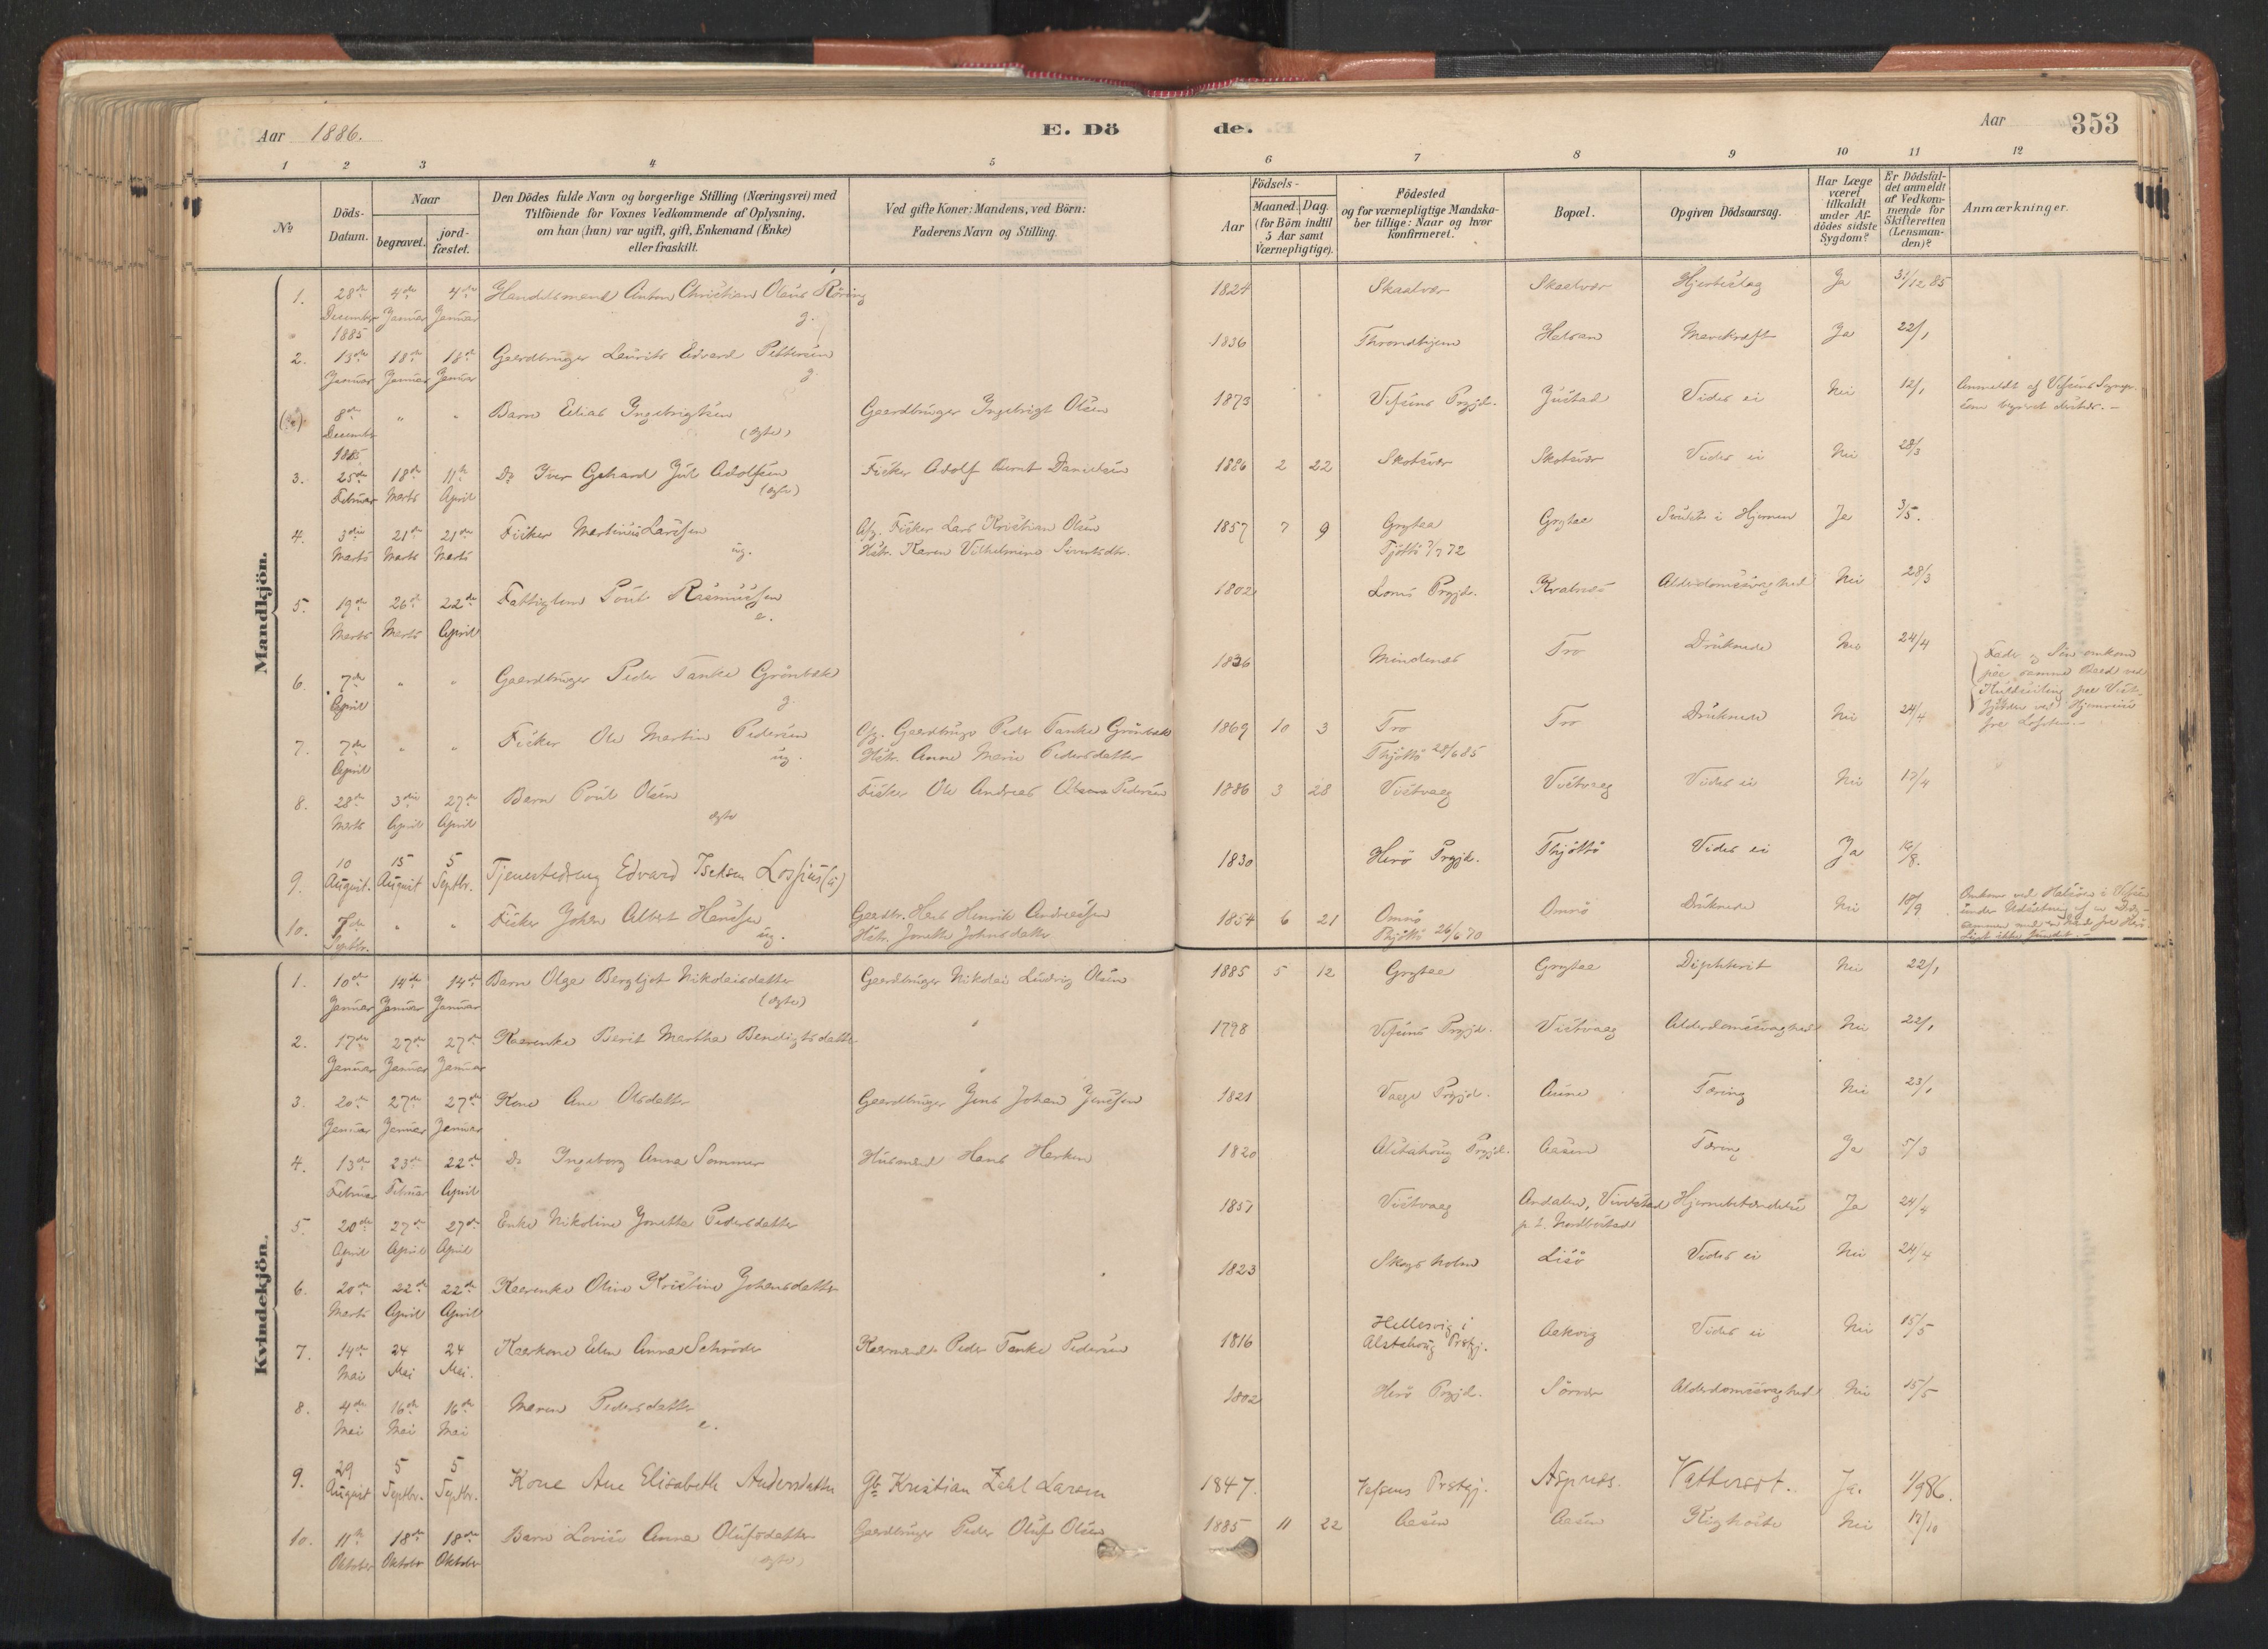 Aar 1886. E. Dö de. Aar 353
1 2 3 4 5 6 7 8 9 10 11 12
№
Döds-Datum.
Naar
begravet.
jord-fæstet.
Den Dödes fulde Navn og borgerlige Stilling (Næringsvei) med
Tilföiende for Voxnes Vedkommende af Oplysning.
om han (hun) var ugift, gift, Enkemand (Enke)
eller fraskilt.
Ved gifte Koner: Mandens, ved Börn:
Faderens Navn og Stilling.
Födsels-
Aar
Maaned. Dag.
(for Börn indtil
5 Aar samt
Værnepligtige).
Födested
og for værnepligtige Mandska-
ber tillige: Naar og hvor
konfirmeret.
Bopæl.
Opgiven Dödsaarsag.
Har Læge
været
tilkaldt
under Af-
dödes sidste
Sygdom?
Er Dödsfal-
det anmeldt
af Vedkom-
mende for
Skifteretten
(Lensman-
den)?
Anmærkninger.
Mandkjön.
1. 28de December 1885 4de Januar 4de Januar Handelsmand Anton Christian Olaus Röring g. 1824 Skaalvær Skaalvær Hjerteslag Ja 31/12 85
2. 13de Januar 18de Januar 18de Januar Gaardbruger Laurits Edvard Pettersen g. 1836 Throndhjem Halsan Marvkræft Ja 22/1
8de December 1885 " " Barn Elias Ingebrigtsen (ægte) Gaardbruger Ingebrigt Olsen 1873 Vefsens Prgjd. Justad Vides ei Nei 12/1 Anmeldt af Vefsens Sogne-
3. 25de Februar 18de Marts 11te April Do Iver Gerhard Jul Adolfsen (ægte) Fisker Adolf Bernt Danielsen 1886 2 22 Skotsvær Skotsvær Vides ei Nei 28/3
4. 3die Marts 21de Marts 21de Marts Fisker Martinus Larssen ug. Afg. Fisker Lars Kristian Olsen
Hstr. Karen Vilhelmine Sivertsdtr. 1857 7 9 Grytaa
Tjöttö 7/7 72 Grytaa Svulst i Hjernen Ja 3/5.
5. 19de Marts 26de Marts 22de April Fattiglem Poul Rasmussen e. 1802 Loms Prgjd. Kvalnæs Alderdomssvaghed Nei 28/3
6. 7de April " " Gaardbruger Peder Tanke Grönbæk g. 1836 Mindenæs Tro Druknede Nei 24/4 Fader og Sön omkom
paa samme Baad ved
Kuldseiling paa Vest-
fjorden ved Hjemreise
fra Lofoten.
7. 7de April " " Fisker Ole Martin Pedersen ug. Afg. Gaardbruger Peder Tanke Grönbæk
Hstr. Anne Marie Pedersdatter 1869 10 3 Tro
Thjöttö 28/6 85 Tro Druknede Nei 24/4
8. 28de Marts 3die April 27de April Barn Poul Olsen ægte Fisker Ole Andreas Olsen Pedersen 1886 3 28 Vistvaag Vistvaag Vides ei Nei 17/4
9. 10 August. 15 August 5 Septbr. Tjenestedreng Edvard Isaksen Lossius (u) 1830 Herö Prgjd. Thjöttö Vides ei Ja 19/8.
10. 7de Septbr. " " Fisker Johan Albert Hanssen ug. Gaardbr. Hans Henrik Andreassen
Hstr. Jonetta Johnsdatter 1854 6 21 Omnö
Thjöttö 26/6 70 Omnö Druknede Nei 18/9 Omkom ved Halsöen i Vefsen
Liget ikke fundet.
Kvindekjön.
1. 10de Januar 14de Januar 14de Januar Barn Olga Bergljot Nikolaisdatter (ægte) Gaardbruger Nikolai Ludvig Olsen 1885 5 12 Grytaa Grytaa Diphterit Nei 22/1
2. 17de Januar 27de Januar 27de Januar Kaarenke Berit Martha Bendigtsdatter 1798 Vefsens Prgjd. Vistvaag Alderdomssvaghed Nei 22/1
3. 20de Januar 27de Januar 27de Januar Kone Ane Olsdatter Gaardbruger Jens Johan Jenssen 1821 Vaage Prgjd. Aune Tæring Nei 23/1
4. 13de Februar 23de Februar 22de April Do Ingeborg Anna Sommer Husmand Hans Harken 1820 Alstahoug Prgjd. Aasen Tæring Ja 5/3
5. 20de April 27de April 27de April Enke Nikoline Jonetta Pedersdatter 1857 Vistvaag Andalen, Vivelstad
p. t. Nordbustad Hjernebetændelse Ja 24/4
6. 20de Marts 22de April 22de April Kaarenke Oline Kristine Johansdatter 1823 Skogsholm Lisö Vides ei Nei 24/4
7. 14de Mai 24 Mai 24 Mai. Kaarkone Elen Anna Schröder Kaarmand Peder Tanke Pedersen 1816 Hellesvig i
Alstahoug Prstgj. Aakvig Vides ei Nei 15/5
8. 4de Mai 16de Mai 16de Mai Maren Pedersdatter e. 1802 Herö Prgjd. Sörvær Alderdomssvaghed Nei 15/5
9. 29 August 5 Septbr. 5 Septbr. Kone Ane Elisabeth Andersdatter Gb. Kristian Zahl Larsen 1847. Vefsens Prstgj. Aspnes. Vattersot. Ja. 1/9 86.
10. 11te Oktober 18de Oktober 18de Oktober Barn Lovise Anna Olufsdatter (ægte) Gaardbruger Peder Oluf Olsen 1885 11 22 Aasen Aasen Kighoste Nei 17/10